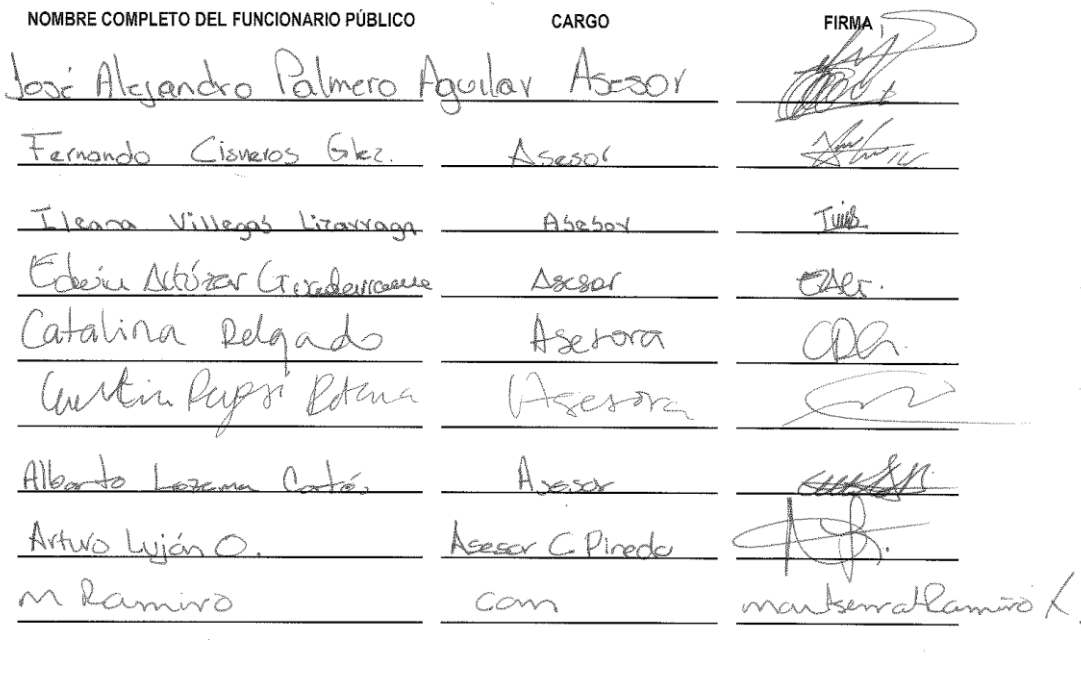 NOMBRE COMPLETO DEL FUNCIONARIO PÚBLICO CARGO FIRMA
José Alejandro Palmero Aguilar Asesor
Fernando Cisneros Glez. Asesor
Ileana Villegas Lizarraga Asesor
Edwin Asesor
Catalina Delgado Asesora CDG.
Asesora
Alberto Lezama Cortés Asesor
Arturo Luján O. Asesor C. Pineda
M Ramiro com montserratRamiro X.